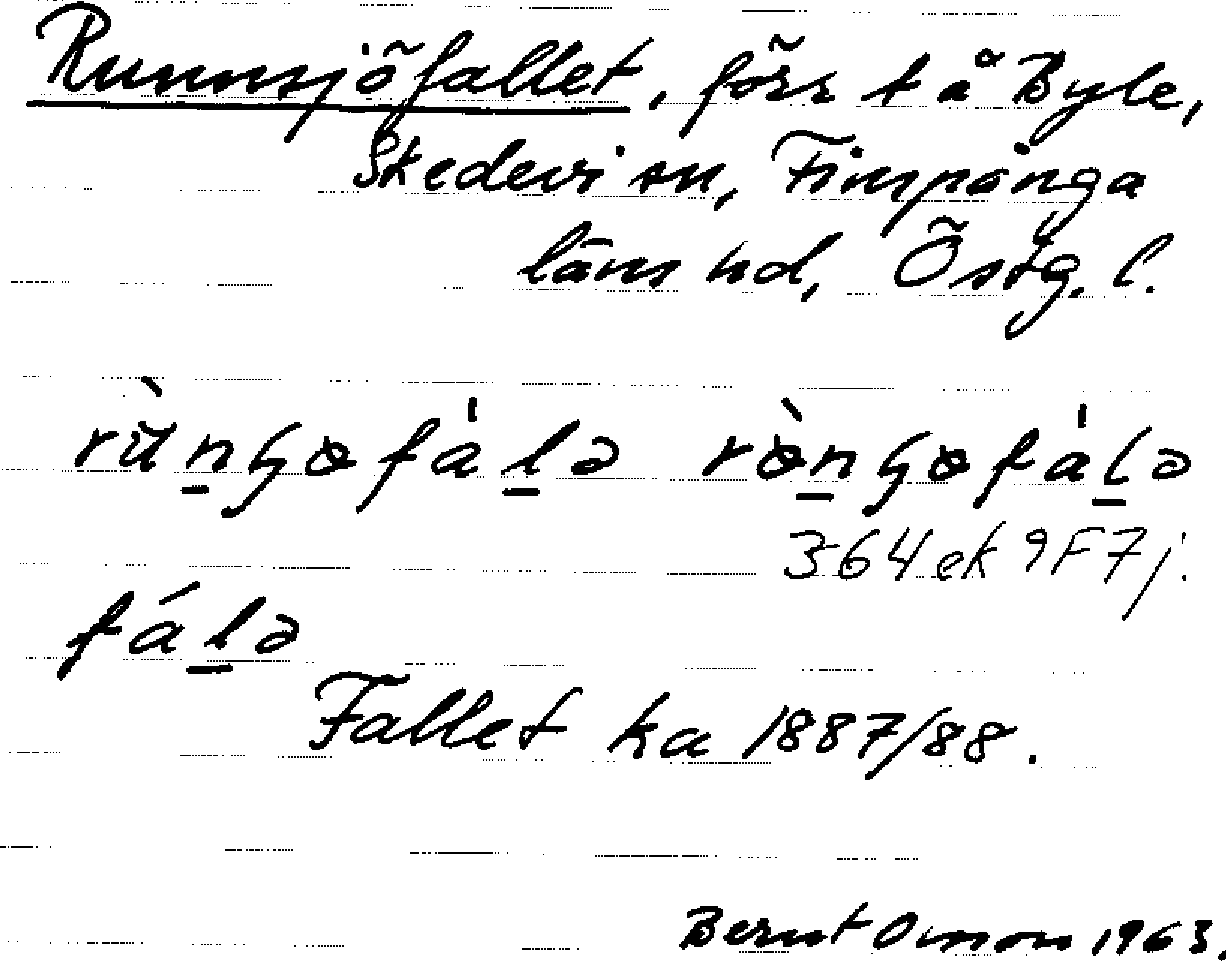 Runnsjöfallet, förr t å Byle,
Skedevi sn, Finspånga
läns hd, Östg. l.
fálə
364 ek 9F7j.
Fallet ka 1887/88.
Bernt Omson 1963.